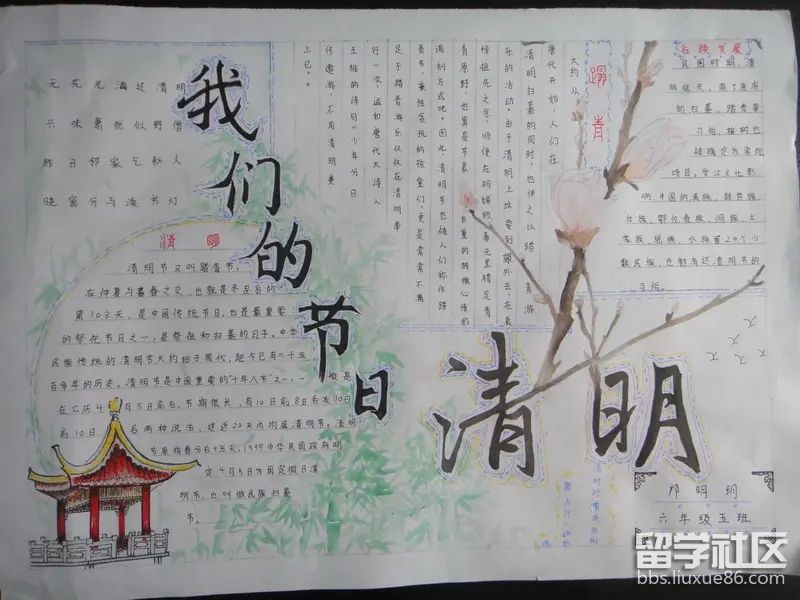 我们的节日
清明
无花无酒过清明
兴味萧然似野僧
昨日邻家乞新火
晓窗分与读书灯
清明
清明节又叫踏青节，
在仲夏与暮春之交，也就是冬至后的
第108天，是中国传统节日，也是最重要
的祭祀节日之一，是祭祖和扫墓的日子。中华
民族传统的清明节大约始于周代，距今已有二千五
百多年的历史。清明节是中国重要的"十年八节"之一，一般是
在公历4月5日前后，节期很长，有10日前8日后及10日
前10日后两种说法，这近20天内均属清明节。清明
节原指春分后十五天，1935中华民国政府明
定4月5日为国定假日清
明节，也叫做民族扫墓
节。
踏青
大约从
唐代开始，人们在
清明扫墓的同时，也伴之以踏青游
乐的活动。由于清明上坟要到郊外去，在哀
悼祖先之余，顺便在明媚的春光里骋足青
青原野，也算是节哀自重的转换心情的
调剂方式吧。因此，清明节也被人们称作踏
青节。童性贪玩的孩童们，更是常常不满
足于踏青游乐仅仅在清明举
行一次，诚如唐代大诗人
王维的诗句"少年分日
作遨游，不用清明兼
上巳。
后续发展
民国时期，清
明这天，除了原有
的扫墓、踏青等
习俗，植树也
被确定为常规
项目。受汉文化影
响，中国的满族、赫哲族、
壮族、鄂伦春族、侗族、土
家族、苗族、水族等24个少
数民族，也都有过清明节的
习俗。
清明时节雨纷纷
路上行人欲断
魂
邦明玥
六年级五班
留学社区
bbs.liuxue86.com